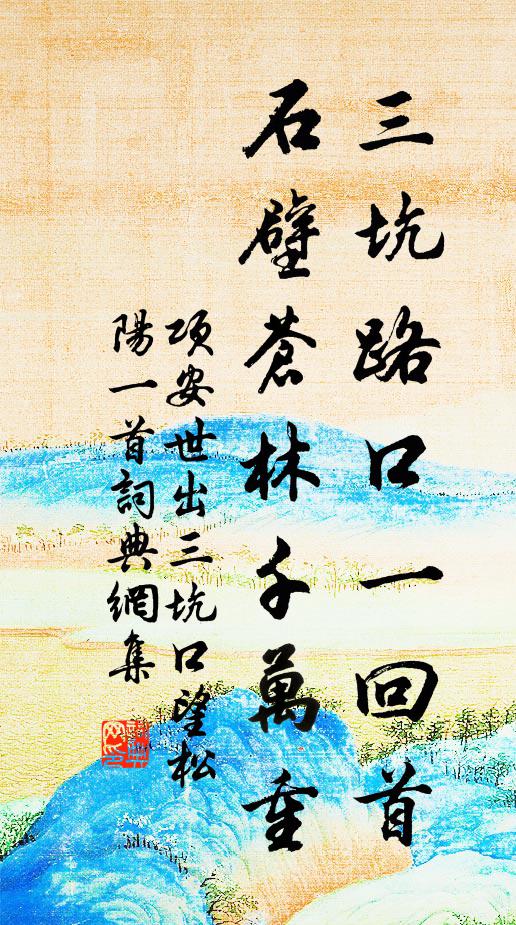 三坑路口一回首
石壁蒼林千萬重
項安世出三坑口望松
陽一首詞典網集